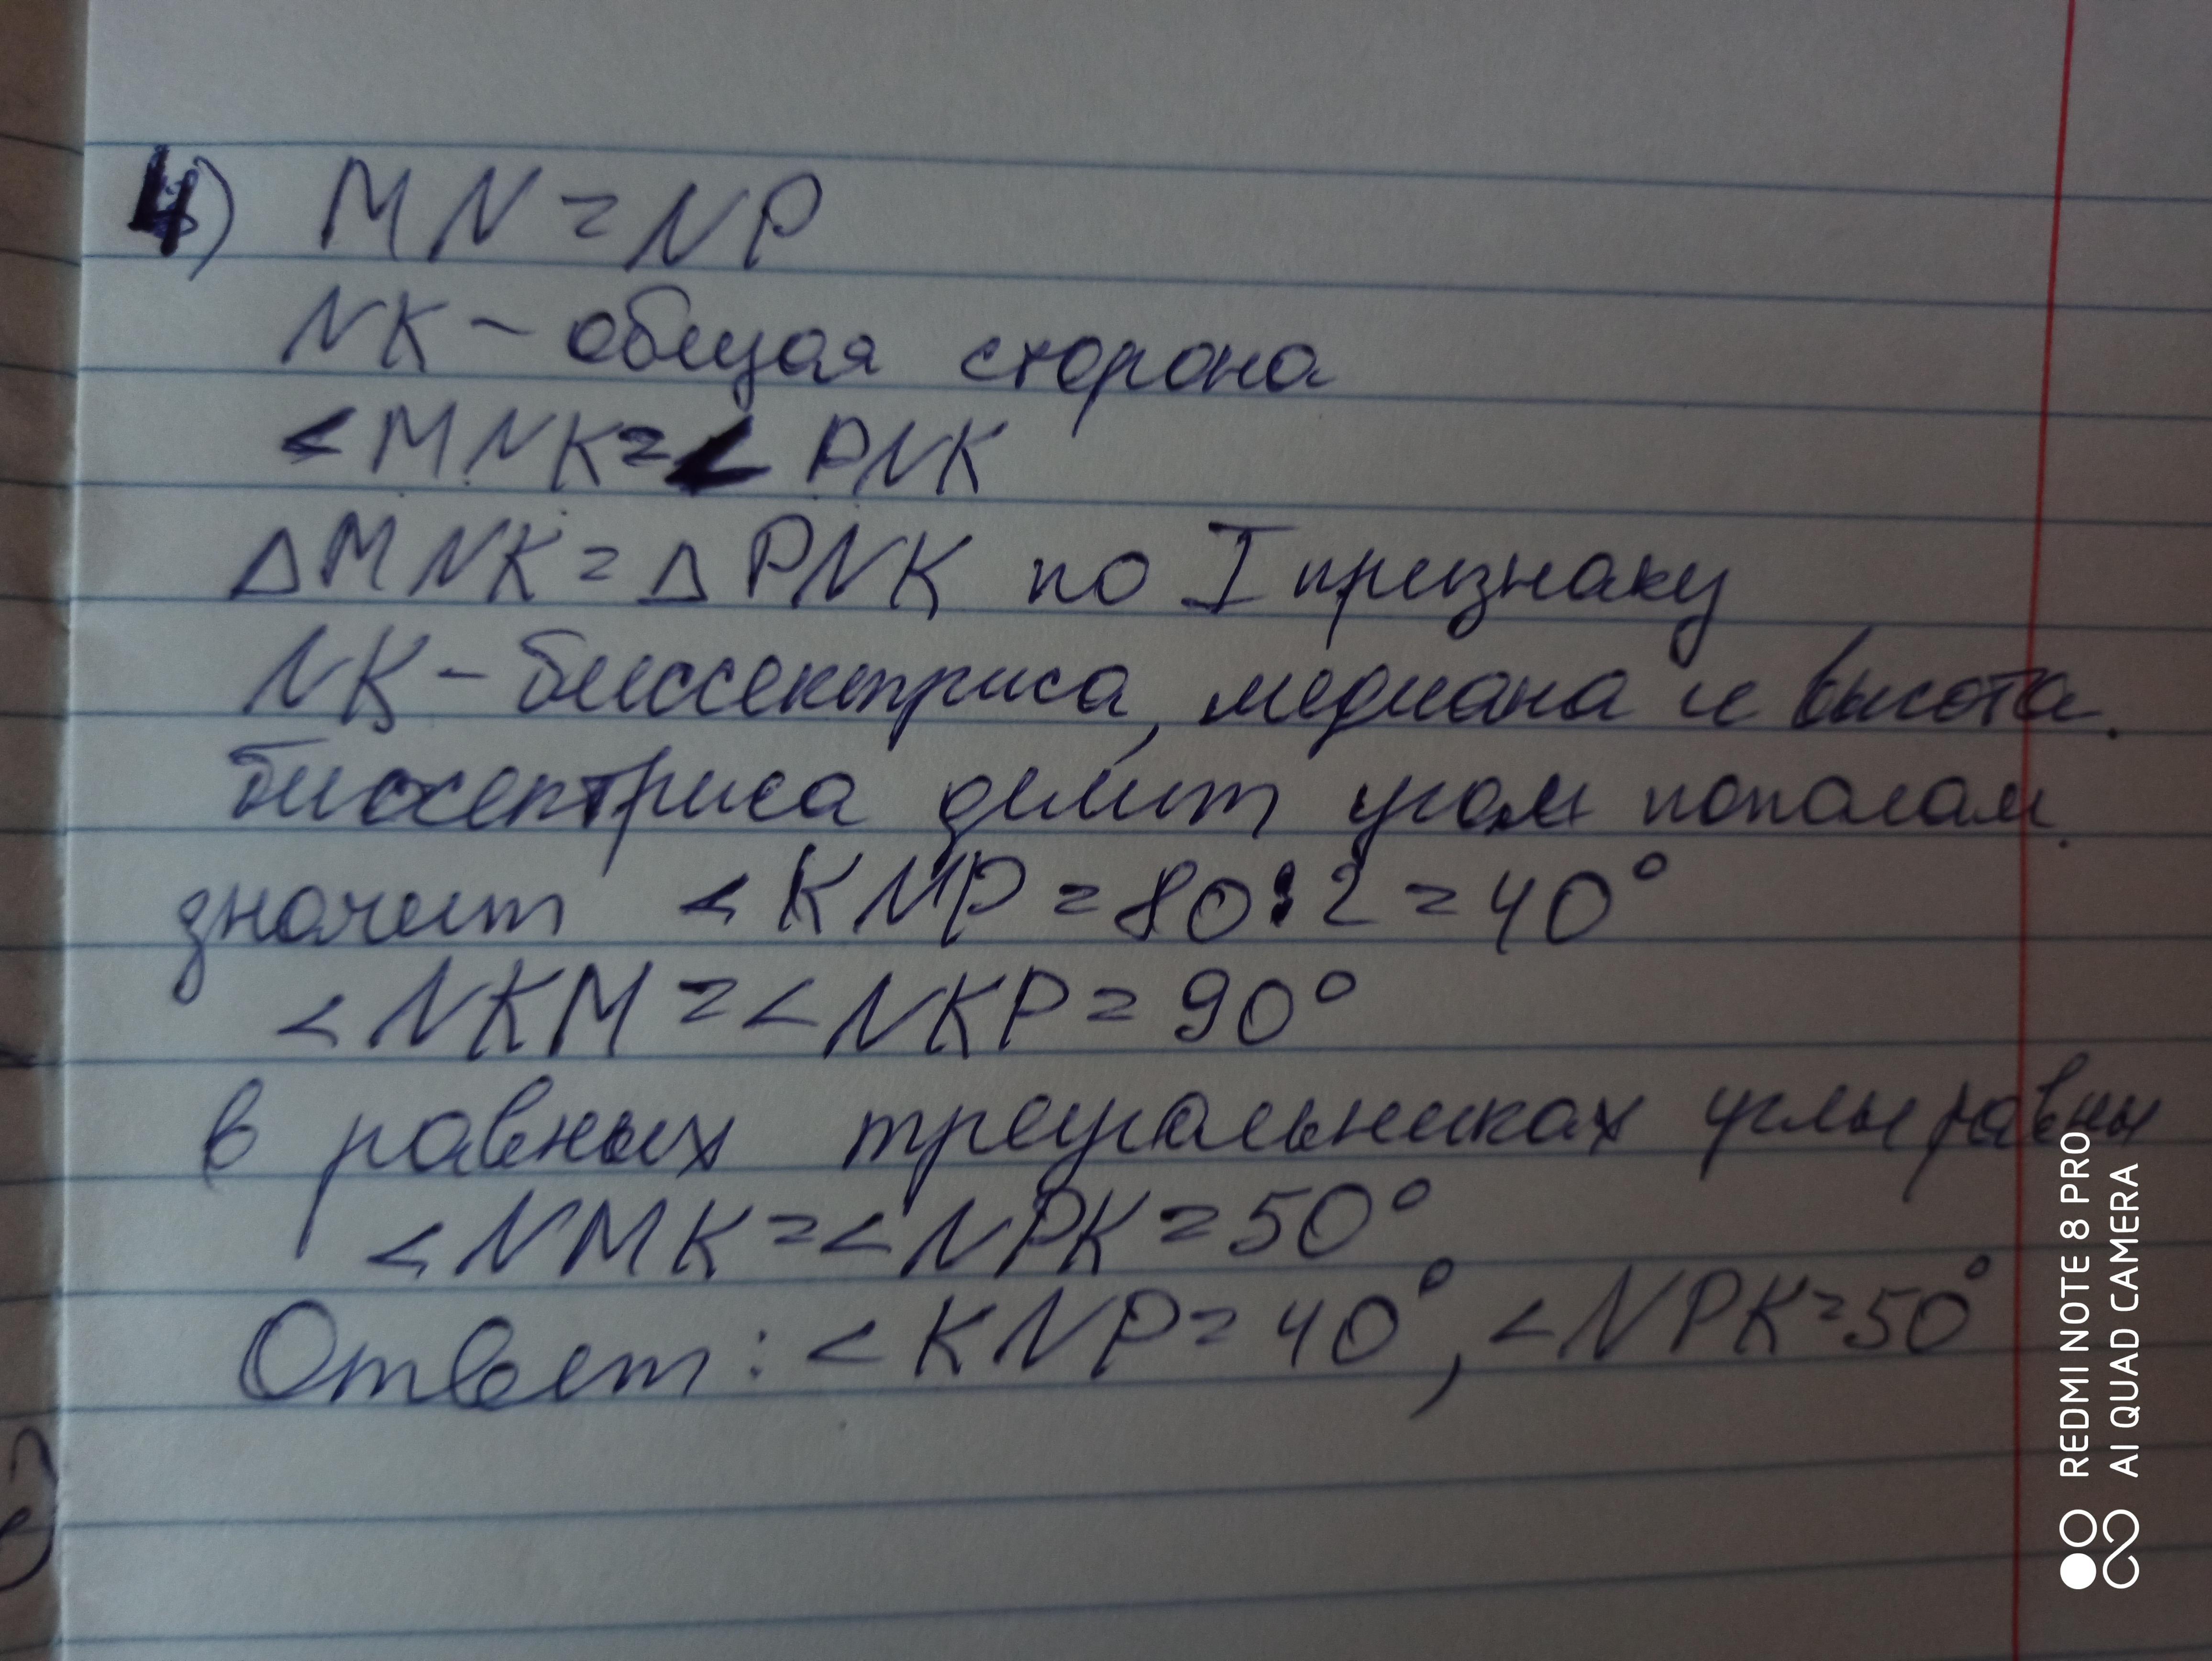 4) MN = NP
NK - общая сторона
<MNK = < PNK
△MNK = △PNK по I признаку
NK - биссектриса, медиана и высота.
биссектриса делит угол пополам.
значит <KNP = 80:2 = 40°
<NKM = <NKP = 90°
в равных треугольниках углы равны
<NMK = <NPK = 50°
Ответ: <KNP = 40°, <NPK = 50°
REDMI NOTE 8 PRO
AI QUAD CAMERA